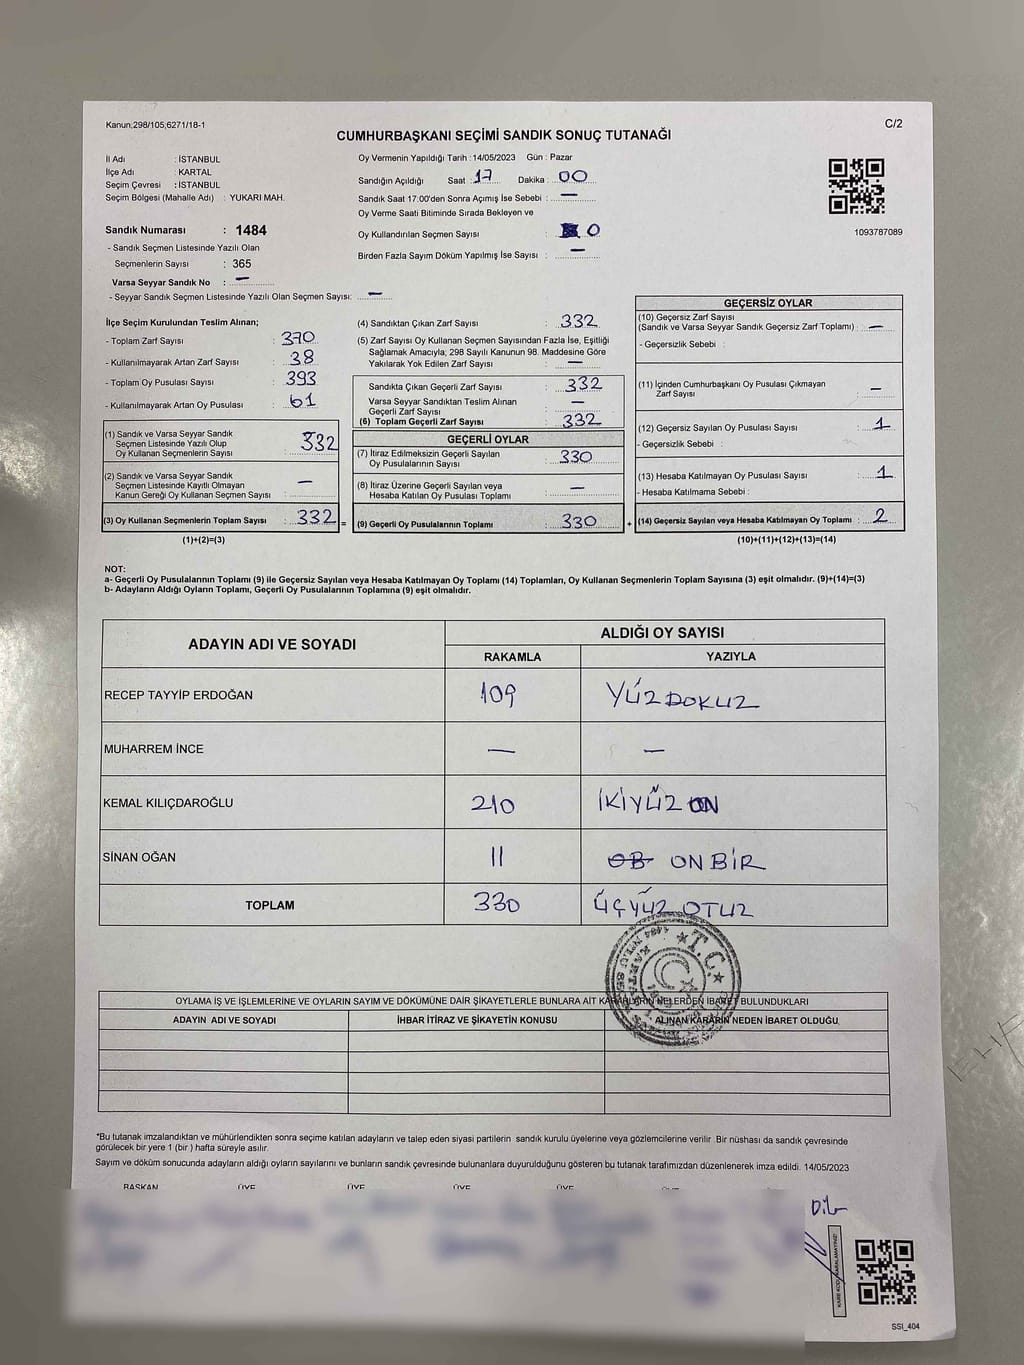 Kanun,298/105;6271/18-1
C/2
CUMHURBAŞKANI SEÇİMİ SANDIK SONUÇ TUTANAĞI
İl Adı : İSTANBUL
İlçe Adı : KARTAL
Seçim Çevresi : İSTANBUL
Seçim Bölgesi (Mahalle Adı) : YUKARI MAH.
Sandık Numarası : 1484
- Sandık Seçmen Listesinde Yazılı Olan
Seçmenlerin Sayısı : 365
Varsa Seyyar Sandık No : —
- Seyyar Sandık Seçmen Listesinde Yazılı Olan Seçmen Sayısı: —
Oy Vermenin Yapıldığı Tarih : 14/05/2023 Gün : Pazar
Sandığın Açıldığı Saat : 17 Dakika : 00
Sandık Saat 17:00'den Sonra Açımış İse Sebebi : —
Oy Verme Saati Bitiminde Sırada Bekleyen ve
Oy Kullandırılan Seçmen Sayısı : 0
Birden Fazla Sayım Döküm Yapılmış İse Sayısı : —
1093787089
İlçe Seçim Kurulundan Teslim Alınan;
- Toplam Zarf Sayısı : 370
- Kullanılmayarak Artan Zarf Sayısı : 38
- Toplam Oy Pusulası Sayısı : 393
- Kullanılmayarak Artan Oy Pusulası : 61
(1) Sandık ve Varsa Seyyar Sandık
Seçmen Listesinde Yazılı Olup
Oy Kullanan Seçmenlerin Sayısı : 332
(2) Sandık ve Varsa Seyyar Sandık
Seçmen Listesinde Kayıtlı Olmayan
Kanun Gereği Oy Kullanan Seçmen Sayısı : —
(3) Oy Kullanan Seçmenlerin Toplam Sayısı : 332 =
(1)+(2)=(3)
(4) Sandıktan Çıkan Zarf Sayısı : 332
(5) Zarf Sayısı Oy Kullanan Seçmen Sayısından Fazla İse, Eşitliği
Sağlamak Amacıyla; 298 Sayılı Kanunun 98. Maddesine Göre
Yakılarak Yok Edilen Zarf Sayısı : —
Sandıkta Çıkan Geçerli Zarf Sayısı : 332
Varsa Seyyar Sandıktan Teslim Alınan
Geçerli Zarf Sayısı : —
(6) Toplam Geçerli Zarf Sayısı : 332
GEÇERLİ OYLAR
(7) İtiraz Edilmeksizin Geçerli Sayılan
Oy Pusulalarının Sayısı : 330
(8) İtiraz Üzerine Geçerli Sayılan veya
Hesaba Katılan Oy Pusulası Toplamı : —
(9) Geçerli Oy Pusulalarının Toplamı : 330 +
GEÇERSİZ OYLAR
(10) Geçersiz Zarf Sayısı
(Sandık ve Varsa Seyyar Sandık Geçersiz Zarf Toplamı) : —
- Geçersizlik Sebebi :
(11) İçinden Cumhurbaşkanı Oy Pusulası Çıkmayan
Zarf Sayısı : —
(12) Geçersiz Sayılan Oy Pusulası Sayısı : 1
- Geçersizlik Sebebi :
(13) Hesaba Katılmayan Oy Pusulası Sayısı : 1
- Hesaba Katılmama Sebebi :
(14) Geçersiz Sayılan veya Hesaba Katılmayan Oy Toplamı : 2
(10)+(11)+(12)+(13)=(14)
NOT:
a- Geçerli Oy Pusulalarının Toplamı (9) ile Geçersiz Sayılan veya Hesaba Katılmayan Oy Toplamı (14) Toplamları, Oy Kullanan Seçmenlerin Toplam Sayısına (3) eşit olmalıdır. (9)+(14)=(3)
b- Adayların Aldığı Oyların Toplamı, Geçerli Oy Pusulalarının Toplamına (9) eşit olmalıdır.
ADAYIN ADI VE SOYADI
ALDIĞI OY SAYISI
RAKAMLA YAZIYLA
RECEP TAYYİP ERDOĞAN 109 YÜZDOKUZ
MUHARREM İNCE — —
KEMAL KILIÇDAROĞLU 210 İKİYÜZ ON
SİNAN OĞAN 11 ONBİR
TOPLAM 330 ÜÇYÜZ OTUZ
T.C.
OYLAMA İŞ VE İŞLEMLERİNE VE OYLARIN SAYIM VE DÖKÜMÜNE DAİR ŞİKAYETLERLE BUNLARA AİT KARARLARIN NELERDEN İBARET BULUNDUKLARI
ADAYIN ADI VE SOYADI İHBAR İTİRAZ VE ŞİKAYETİN KONUSU ALINAN KARARIN NEDEN İBARET OLDUĞU
*Bu tutanak imzalandıktan ve mühürlendikten sonra seçime katılan adayların ve talep eden siyasi partilerin sandık kurulu üyelerine veya gözlemcilerine verilir. Bir nüshası da sandık çevresinde
görülecek bir yere 1 (bir ) hafta süreyle asılır.
Sayım ve döküm sonucunda adayların aldığı oyların sayılarını ve bunların sandık çevresinde bulunanlara duyurulduğunu gösteren bu tutanak tarafımızdan düzenlenerek imza edildi. 14/05/2023
BAŞKAN ÜYE ÜYE ÜYE ÜYE
KARE KODU KARALAMAYINIZ!
SSI_404